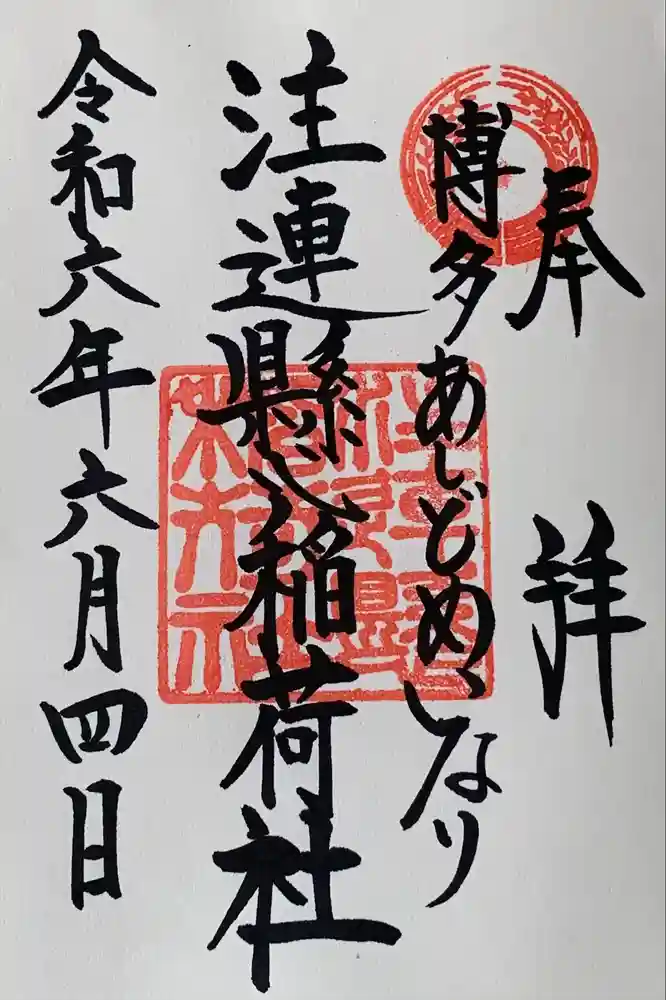 奉拝
博多あしどめいなり
注連懸稲荷社
令和六年六月四日